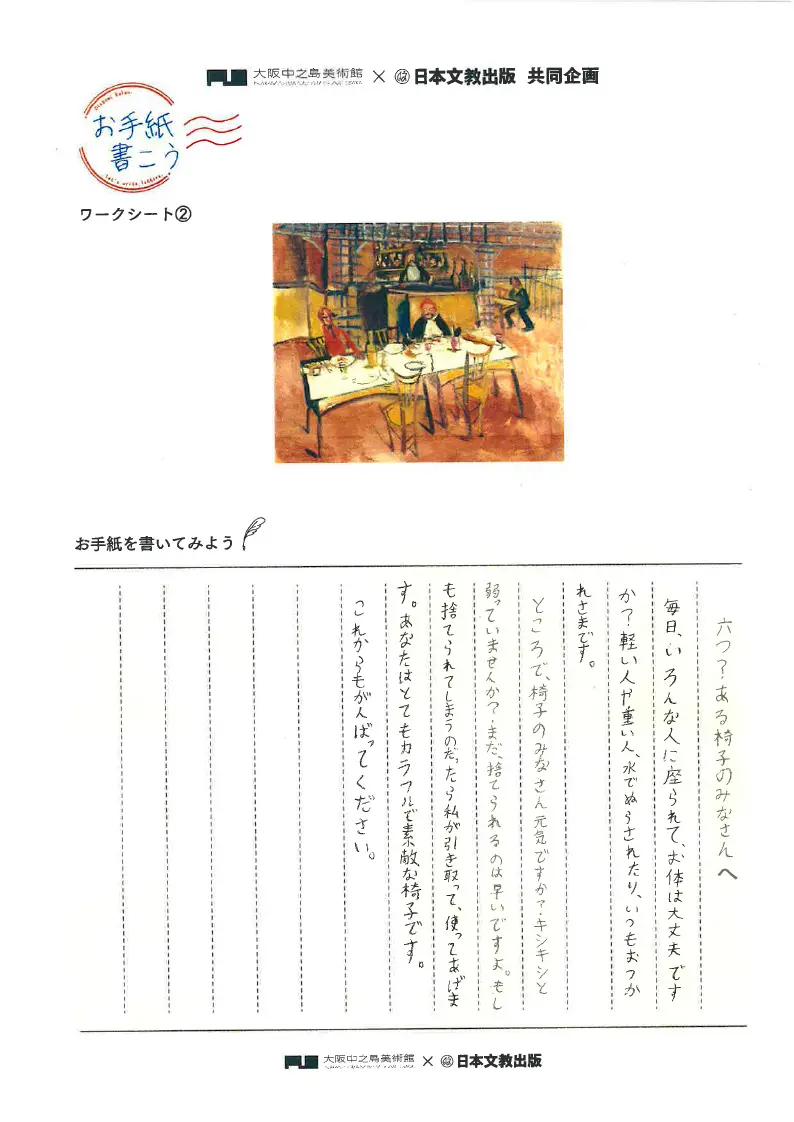 大阪中之島美術館 × 日本文教出版 共同企画
Otegami Kakou.
お手紙
書こう
Let's write letters.
ワークシート②
お手紙を書いてみよう
六つ?ある椅子のみなさんへ
毎日、いろんな人に座られて、お体は大丈夫です
か?軽い人や重い人、水でぬらされたり、いつもおつか
れさまです。
ところで、椅子のみなさん元気ですか?キシキシと
弱っていませんか?まだ、捨てられるのは早いですよ。もし
も捨てられてしまうのだったら私が引き取って、使ってあげま
す。あなたはとてもカラフルで素敵な椅子です。
これからもがんばってください。
大阪中之島美術館 × 日本文教出版